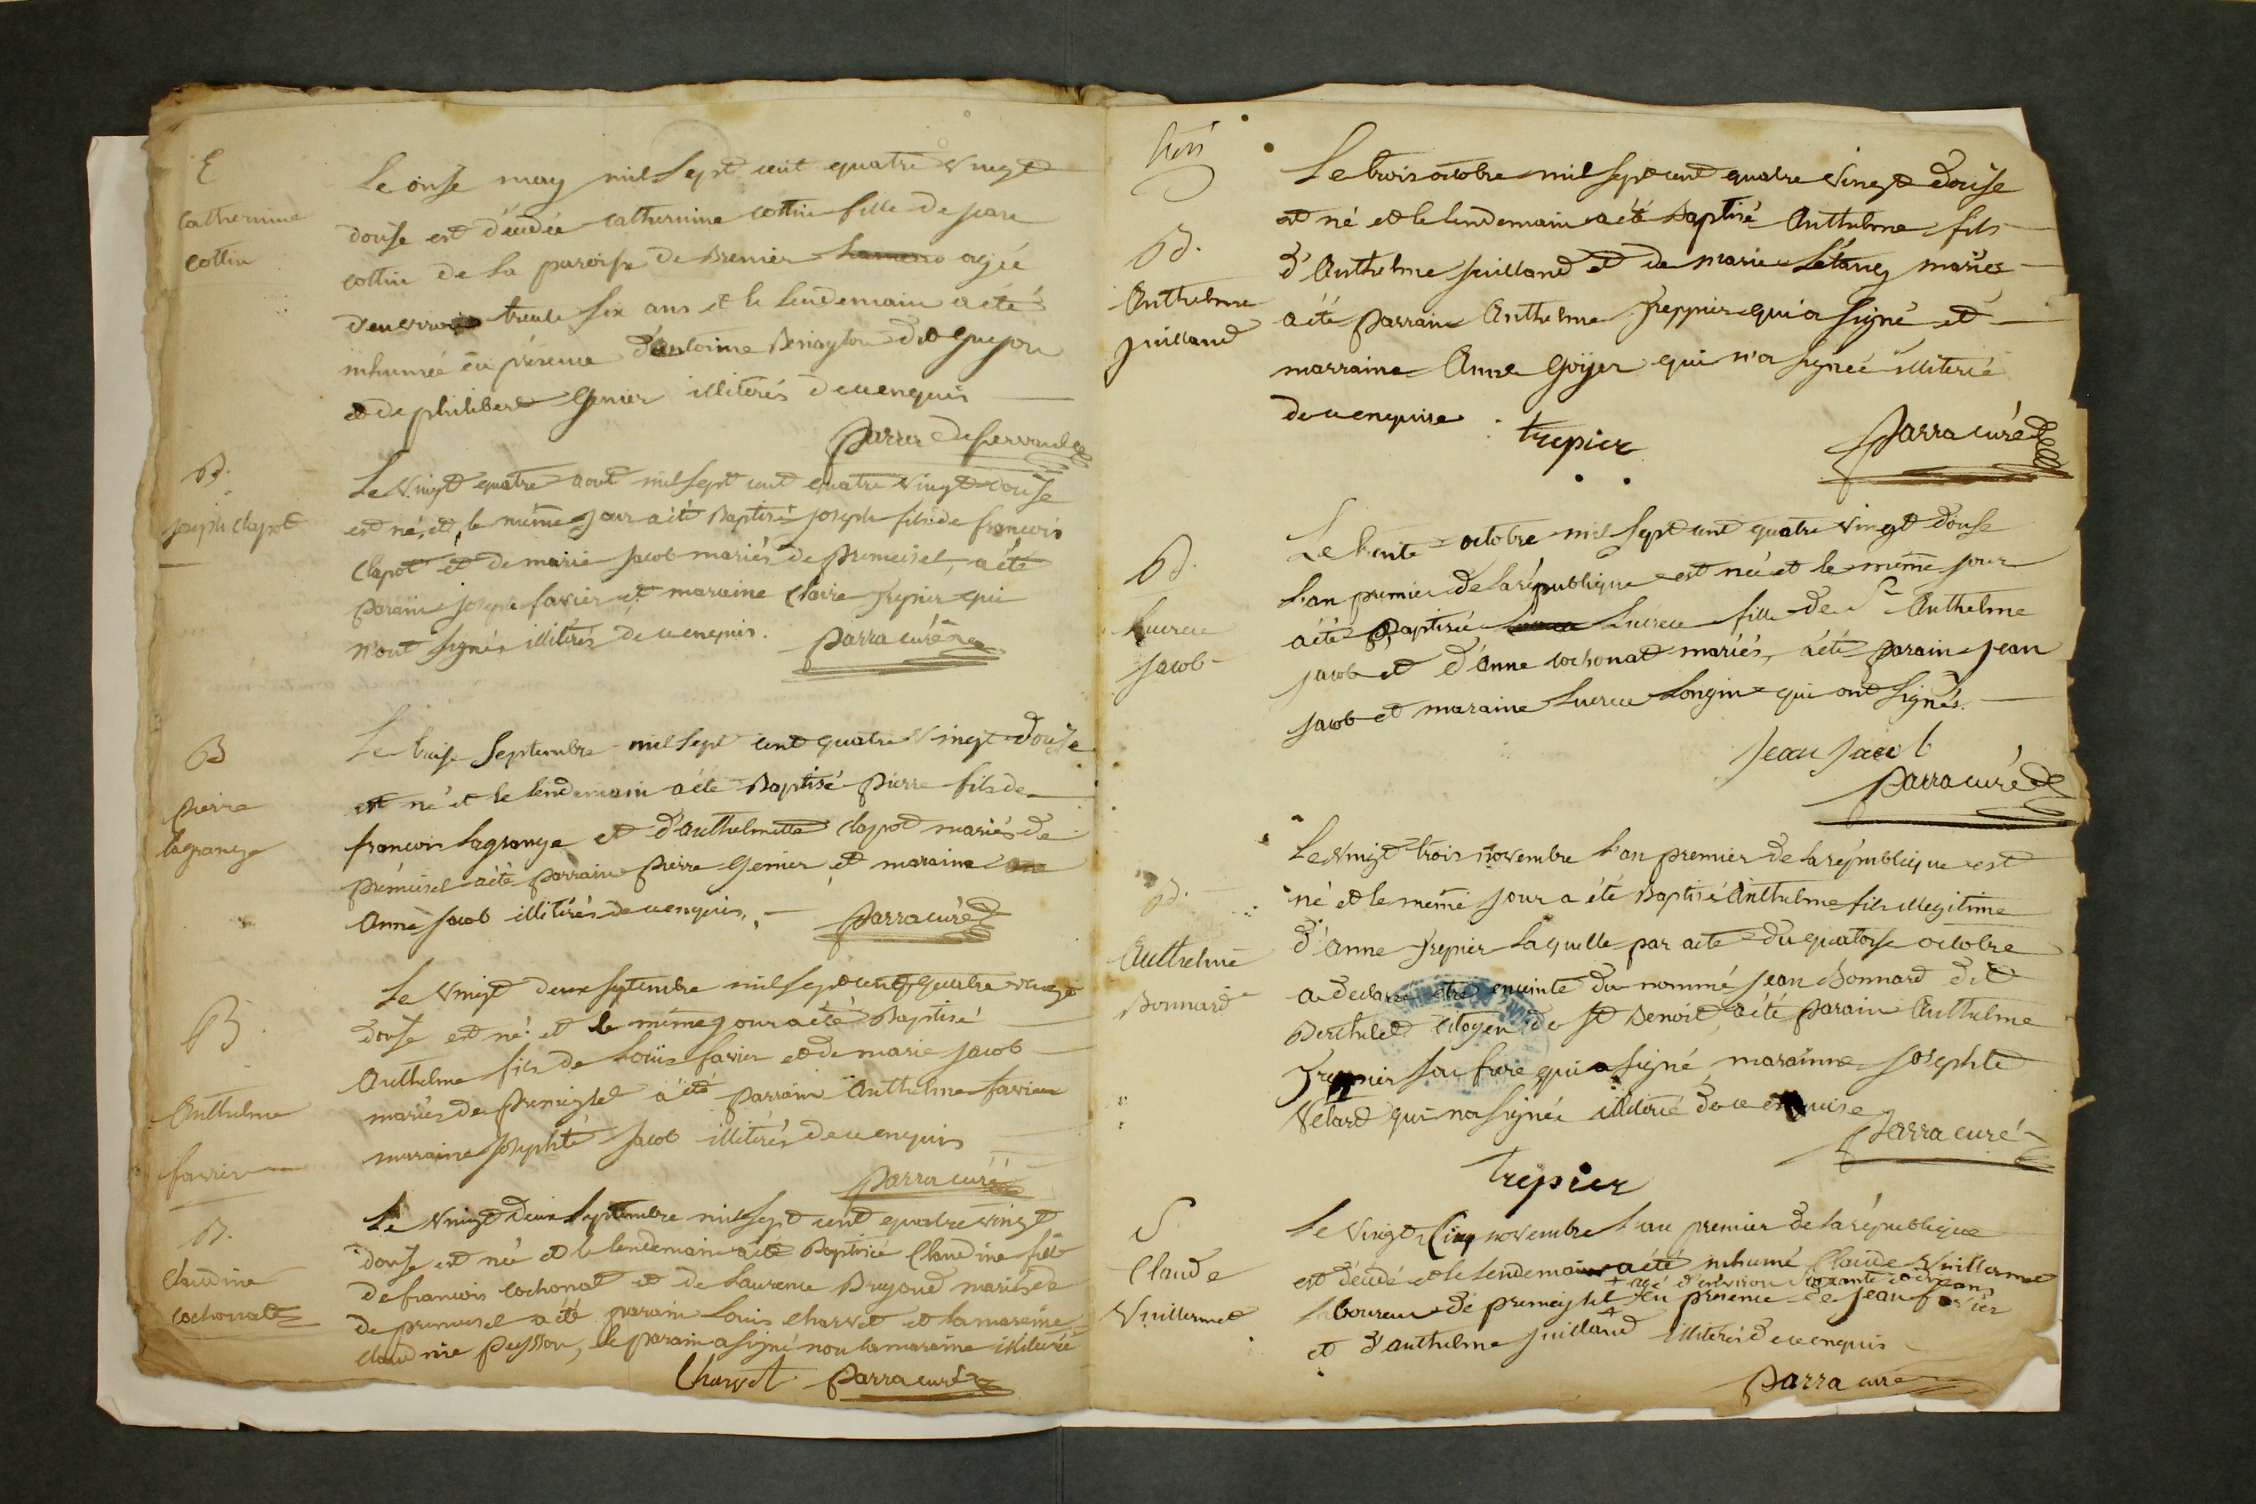 E
Catherinne
Cottin
Le onse may mil Sept cent quatre vingt
douse est décédée catherinne cottin fille de jean
cottin de la paroisse de Brenier agée
d'environ trente six ans et le lendemain a été
inhumée en présence d'antoine dit guyon
et de philibert Genier illiterés de ce enquis
parra
Bd.
joseph Clapot
Le vingt quatre aout mil sept cent quatre vingt douse
est né, et le même jour a été Baptisé joseph fils de françois
Clapot et de marie jacob mariés de premeisel, a été
parain joseph favier et maraine Claire trepier qui
n'ont signés illiterés de ce enquis. parra curé
B
pierre
lagrange
Le treise Septembre mil sept cent quatre vingt douse
est né et le lendemain a été Baptisé pierre fils de
françois lagrange et d'anthelmette Clapot mariés de
prémeisel a été parrain pierre Genier et maraine
Anne jacob illiterés de ce enquis. parra curé
B.
Anthelme
favier
Le vingt deux septembre mil sept cent quatre vingt
douse est né et le même jour a été Baptisé
Anthelme fils de Loüis favier et de marie jacob
mariés de premeysel a été parrain Anthelme favier
maraine josephte jacob illiterés de ce enquis
parra curé
B.
Claudine
cochonat
Le vingt deux Septembre mil sept cent quatre vingt
douse est née et le lendemain a été Baptisée Claudine fille
de françois cochonat et de Laurence mariés
de premeisel a été parain Louis Charvet et la maraine
claudine peysson, le parain a signé non la maraine illiterée
Charvet parra curé
Bd.
Anthelme
juilland
Le trois octobre mil sept cent quatre vingt douse
est né et le lendemain a été Baptisé Anthelme fils
d'Anthelme juilland et de marie Létang mariés
a été parrain Anthelme treppier qui a signé et
marraine Anne Goÿer qui n'a signée illiterée
de ce enquise. trepier parra curé
Bd.
Lucrece
jacob
Le trente octobre mil sept cent quatre vingt douse
l'an premier de la république est née et le même jour
a été Baptisée Lucrece fille de Sr Anthelme
jacob et d'anne cochonat mariés, a été parain jean
jacob et maraine Lucrece Longin qui ont signés.
Jean Jacob
parra curé
Bd.
Anthelme
Bonnard
Le vingt trois novembre l'an premier de la république est
né et le même jour a été Baptisé Anthelme fils illegitime
d'anne trepier laquelle par acte du quatorse octobre
a declaré etre enceinte du nommé jean Bonnard dit
Berthelet citoyen de St Benoit, a été parain Anthelme
trepier son frere qui a signé, marainne josephte
Velard qui n'a signée illiterée de ce enquise
parra curé
trepier
S
Claude
Vuillermet
Le vingt Cinq novembre l'an premier de la république
est décédé et le lendemain a été inhumé Claude Vuillermet
+ agé d'environ soixante ans
laboureur de premeysel + en présence de jean favier
et d'anthelme juilland illiterés de ce enquis
parra curé